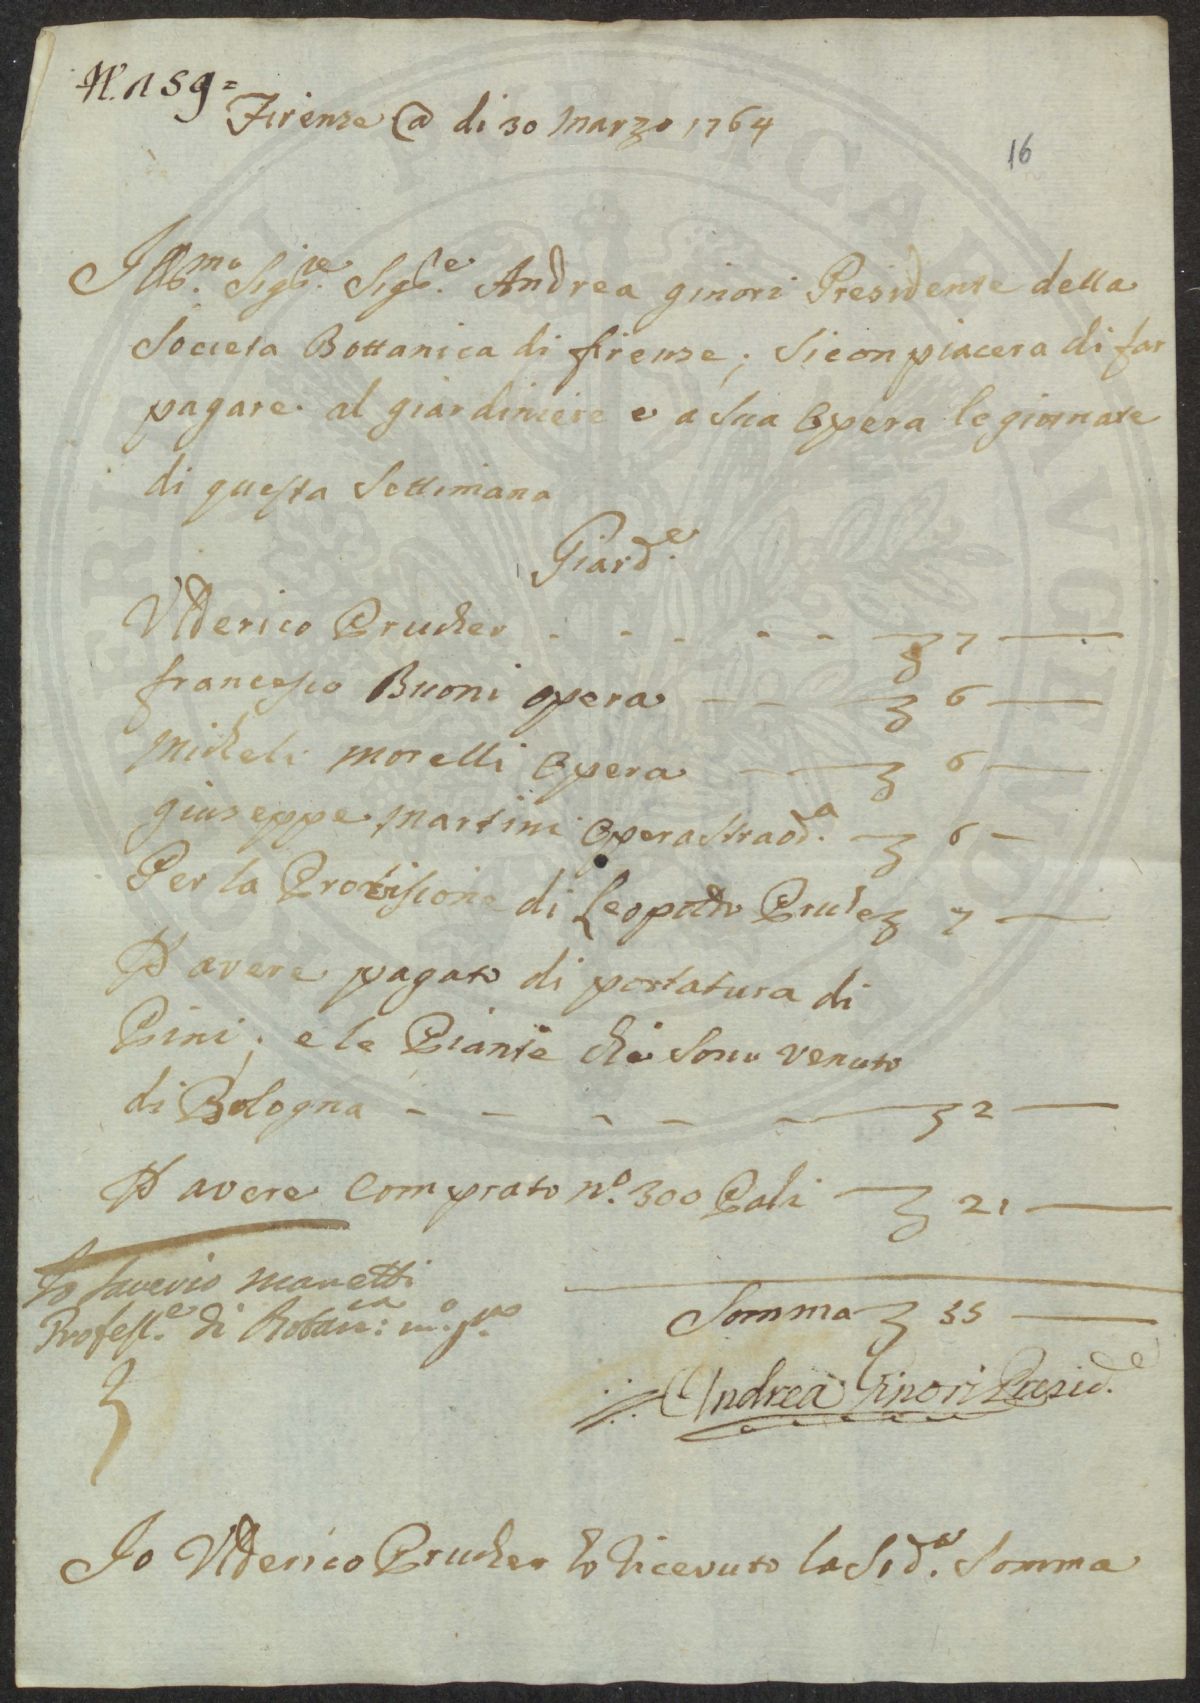 N. 159=
Firenze @ di 30 Marzo 1764
16
Ill.mo Sig.re Sig.re Andrea ginori Presidente della
Societa Bottanica di firenze; Si conpiacera di far
pagare al giardiniere e a Sua Opera le giornate
di questa Settimana
Giard.e
Ulderico Prucher - - - - - ʒ 7 —
francesco Buoni opera - - ʒ 6 —
Micheli Morelli Opera — ʒ 6 —
giuseppe Martini Opera Straod.a ʒ 6 —
Per la Provisione di Leopoldo Pruche ʒ 7 —
P avere pagato di portatura di
Pini; e le Piante che sono venuto
di Bologna - - - - - ʒ 2 —
P avere Comprato n.o 300 Pali ʒ 21 —
Io Saverio Manetti
Profess.e di Botan.ca: m.o p.o
Somma ʒ 55 —
Andrea Ginori Presid.e
Io Ulderico Prucher ho Ricevuto la Sud.a Somma